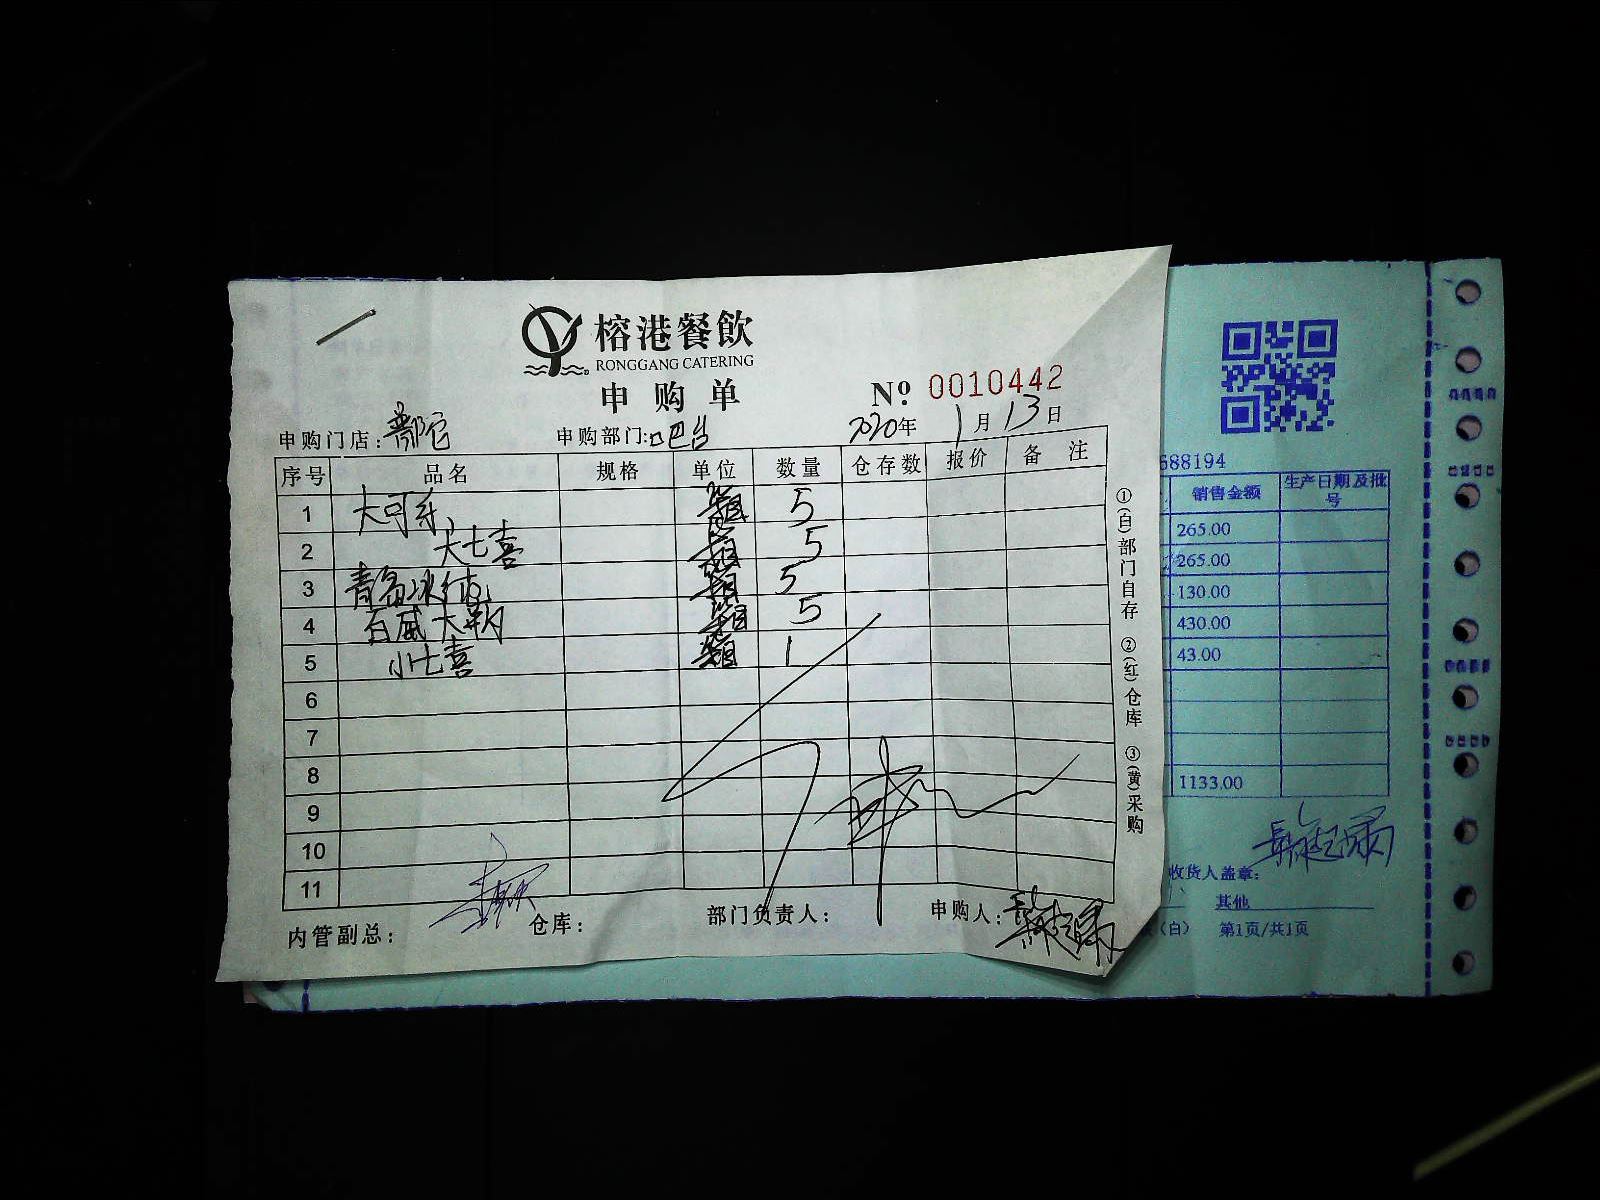 榕港餐飲
RONGGANG CATERING
申购单 № 0010442
申购门店： 申购部门：吧台 2020年1月13日
序号 品名 规格 单位 数量 仓存数 报价 备注
1 大可乐 箱 5
2 大七喜 箱 5
3 青岛冰纯 箱 5
4 百威大 箱 5
5 小七喜 箱 1
6
7
8
9
10
11
内管副总： 仓库： 部门负责人： 申购人：
①(白)部门自存 ②(红)仓库 ③(黄)采购
588194
销售金额 生产日期及批号
265.00
265.00
130.00
430.00
43.00
1133.00
收货人盖章：
其他
(白) 第1页/共1页